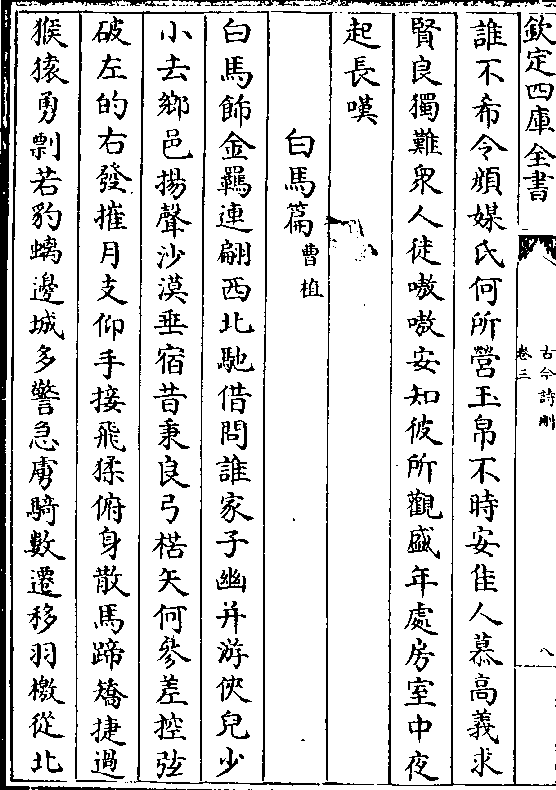 欽定四庫全書
古今詩刪
卷三
八
誰不希令顔媒氏何所營玉帛不時安佳人慕高義求
賢良獨難衆人徒嗷嗷安知彼所觀盛年處房室中夜
起長嘆
白馬篇 曹植
白馬飾金羈連翩西北馳借問誰家子幽并游俠兒少
小去鄉邑揚聲沙漠垂宿昔秉良弓楛矢何參差控弦
破左的右發摧月支仰手接飛猱俯身散馬蹄矯捷過
猴猿勇剽若豹螭邊城多警急虜騎數遷移羽檄從北